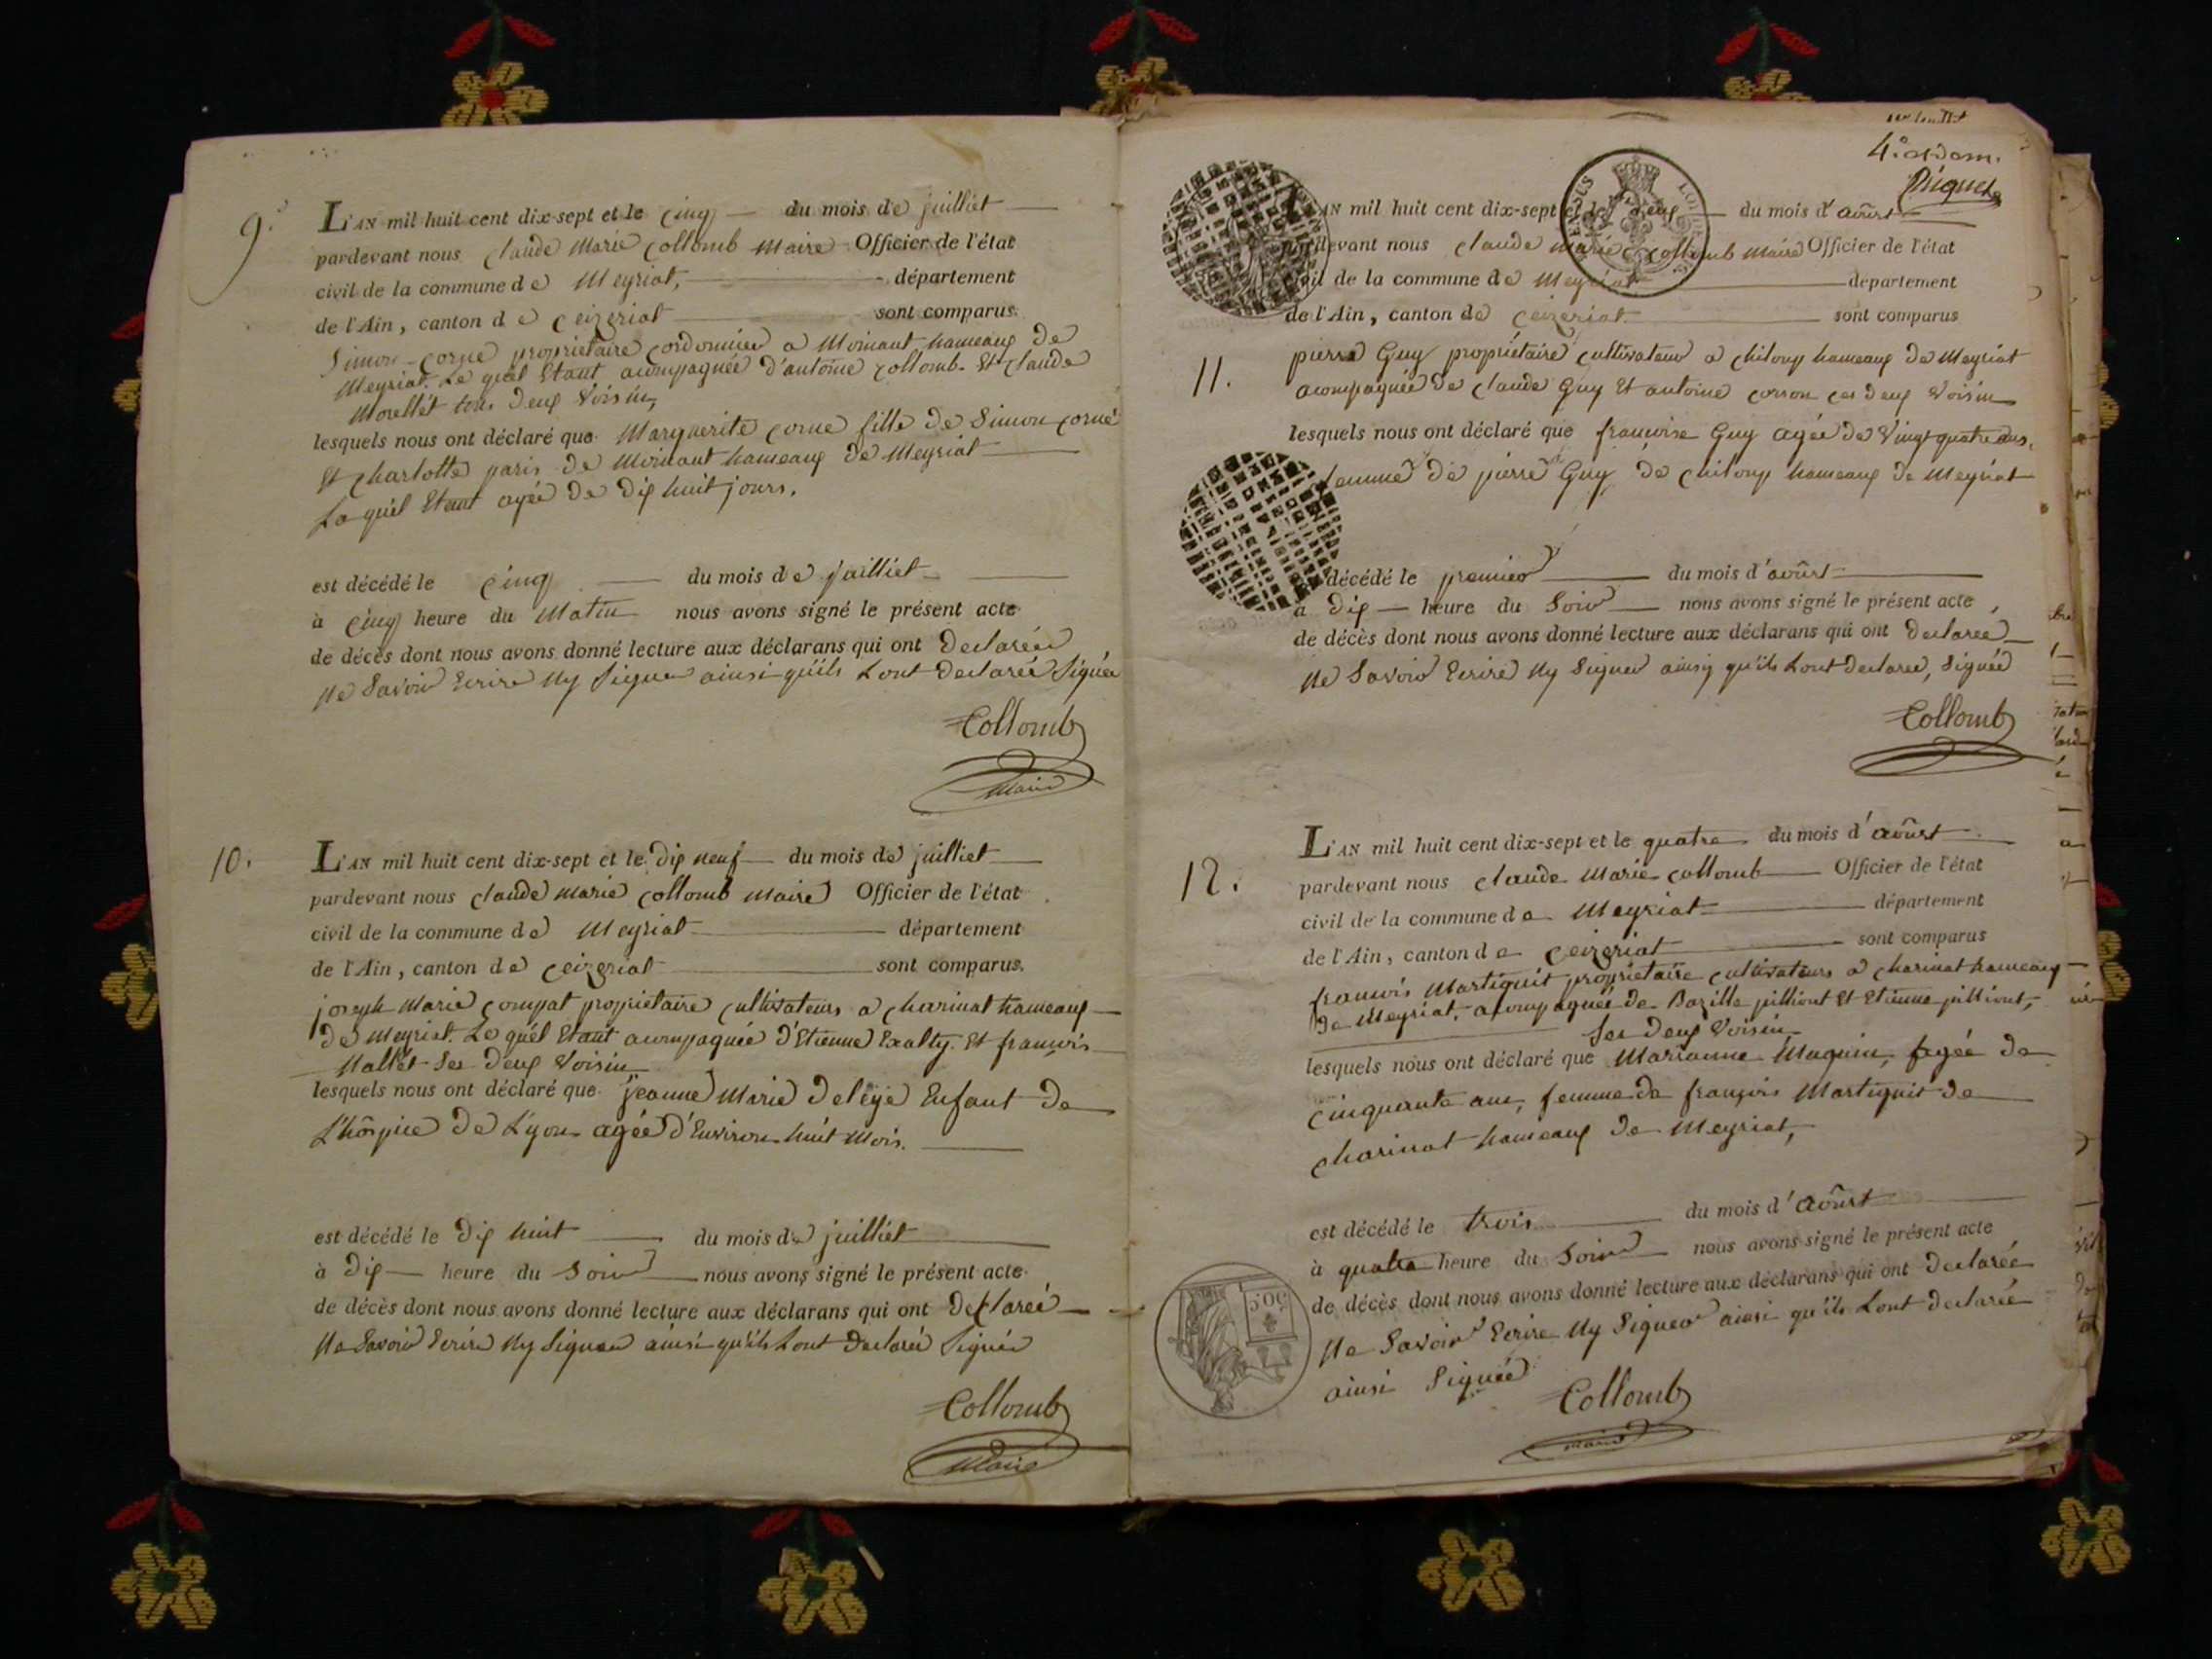 9.
L'AN mil huit cent dix-sept et le cinq du mois de juilliet
pardevant nous claude marie collomb maire Officier de l'état
civil de la commune de Meyriat, département
de l'Ain, canton de ceizeriat sont comparus
Simon corne proprietaire cordonnier a Moinant hameaux de
Meyriat. Le quel Etant acompagnée d'antoine collomb. Et claude
Morellet tous deux Voisin,
lesquels nous ont déclaré que Marguerite corne fille de Simon corne
Et charlotte paris de Moinant hameaux de Meyriat
La quél Etant agée de dix huit jours.
est décédé le cinq du mois de Juilliet
à cinq heure du Matin nous avons signé le présent acte
de décès dont nous avons donné lecture aux déclarans qui ont declareé
Ne Savoir Ecrire Ny Signer ainsi qu'ils Lont declareé Signée
Collomb
Maire
10.
L'AN mil huit cent dix-sept et le dix neuf du mois de juilliet
pardevant nous claude marie collomb maire Officier de l'état
civil de la commune de Meyriat département
de l'Ain, canton de ceizeriat sont comparus.
joseph Marie compat proprietaire cultivateurs a charinat hameaux
de Meyriat. Le quél Etant acompagnée d'Etienne Exalty. Et francois
Mallét Ses deux Voisin
lesquels nous ont déclaré que jeanne Marie deléze Enfant de
L'hôspice de Lyon agéé d'Environ huit Mois.
est décédé le dix huit du mois de juilliet
à dix heure du Soir nous avons signé le présent acte
de décès dont nous avons donné lecture aux déclarans qui ont declareé
Ne Savoir Ecrire Ny Signer ainsi qu'ils Lont declareé Signée
Collomb
Maire
4.e et dern.
L'AN mil huit cent dix-sept et le deux du mois d'aoûst
pardevant nous claude marie collomb maire Officier de l'état
civil de la commune de Meyriat département
de l'Ain, canton de ceizeriat sont comparus
11.
pierre Guy propriétaire cultivateur a chiloup hameaux de Meyriat
acompagnée de claude Guy Et antoine corron ces deux Voisin
lesquels nous ont déclaré que francoise Guy agée de Vingt quatre ans,
femme de pierre Guy de chiloup hameaux de Meyriat
décédé le premier du mois d'aoûst
à dix heure du Soir nous avons signé le présent acte
de décès dont nous avons donné lecture aux déclarans qui ont declareé
Ne Savoir Ecrire Ny Signer ainsy qu'ils Lont declareé, Signée
Collomb
12.
L'AN mil huit cent dix-sept et le quatre du mois d'aoûst
pardevant nous claude Marie collomb Officier de l'état
civil de la commune de Meyriat département
de l'Ain, canton de ceizeriat sont comparus
francois Martignit proprietaire cultivateurs a charinat hameaux
de Meyriat, acompagnée de Bazille pilliont Et Etienne pilliont,
Ses deux Voisin
lesquels nous ont déclaré que Marianne Maquin, agée de
cinquante ans, femme de françois Martignit de
charinat hameaux de Meyriat,
est décédé le trois du mois d'aoûst
à quatre heure du Soir nous avons signé le présent acte
de décès dont nous avons donné lecture aux déclarans qui ont declarée
Ne Savoir Ecrire Ny Signer ainsi qu'ils Lont declarée
ainsi Signée
Collomb
maire
50 C